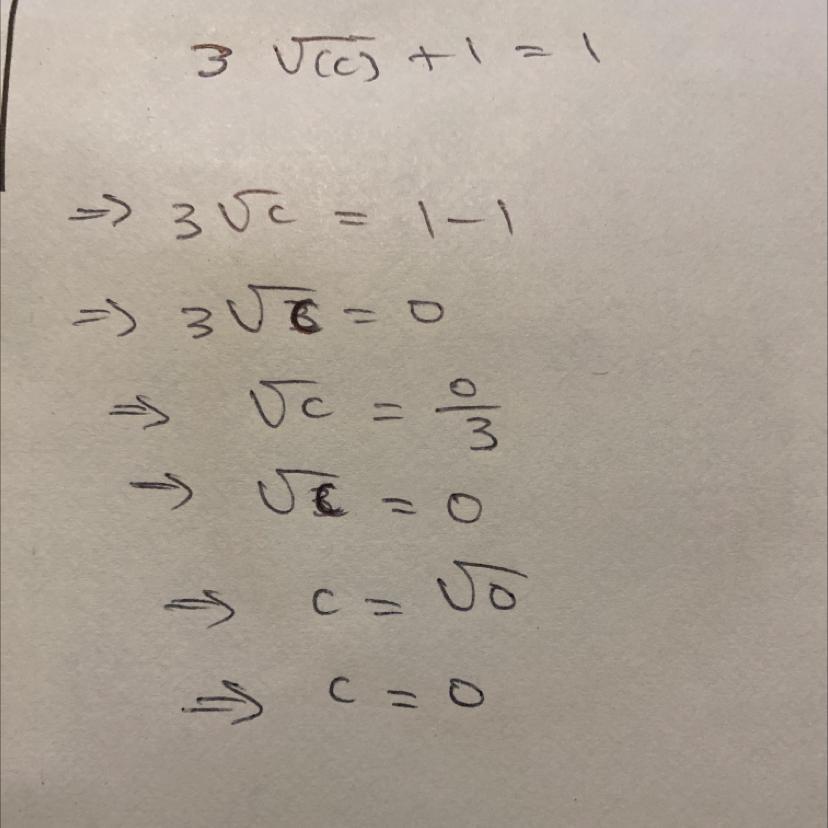 3 √(c) + 1 = 1
⇒ 3√c = 1 - 1
⇒ 3√c = 0
⇒ √c = 0/3
⇒ √c = 0
⇒ c = √0
⇒ c = 0